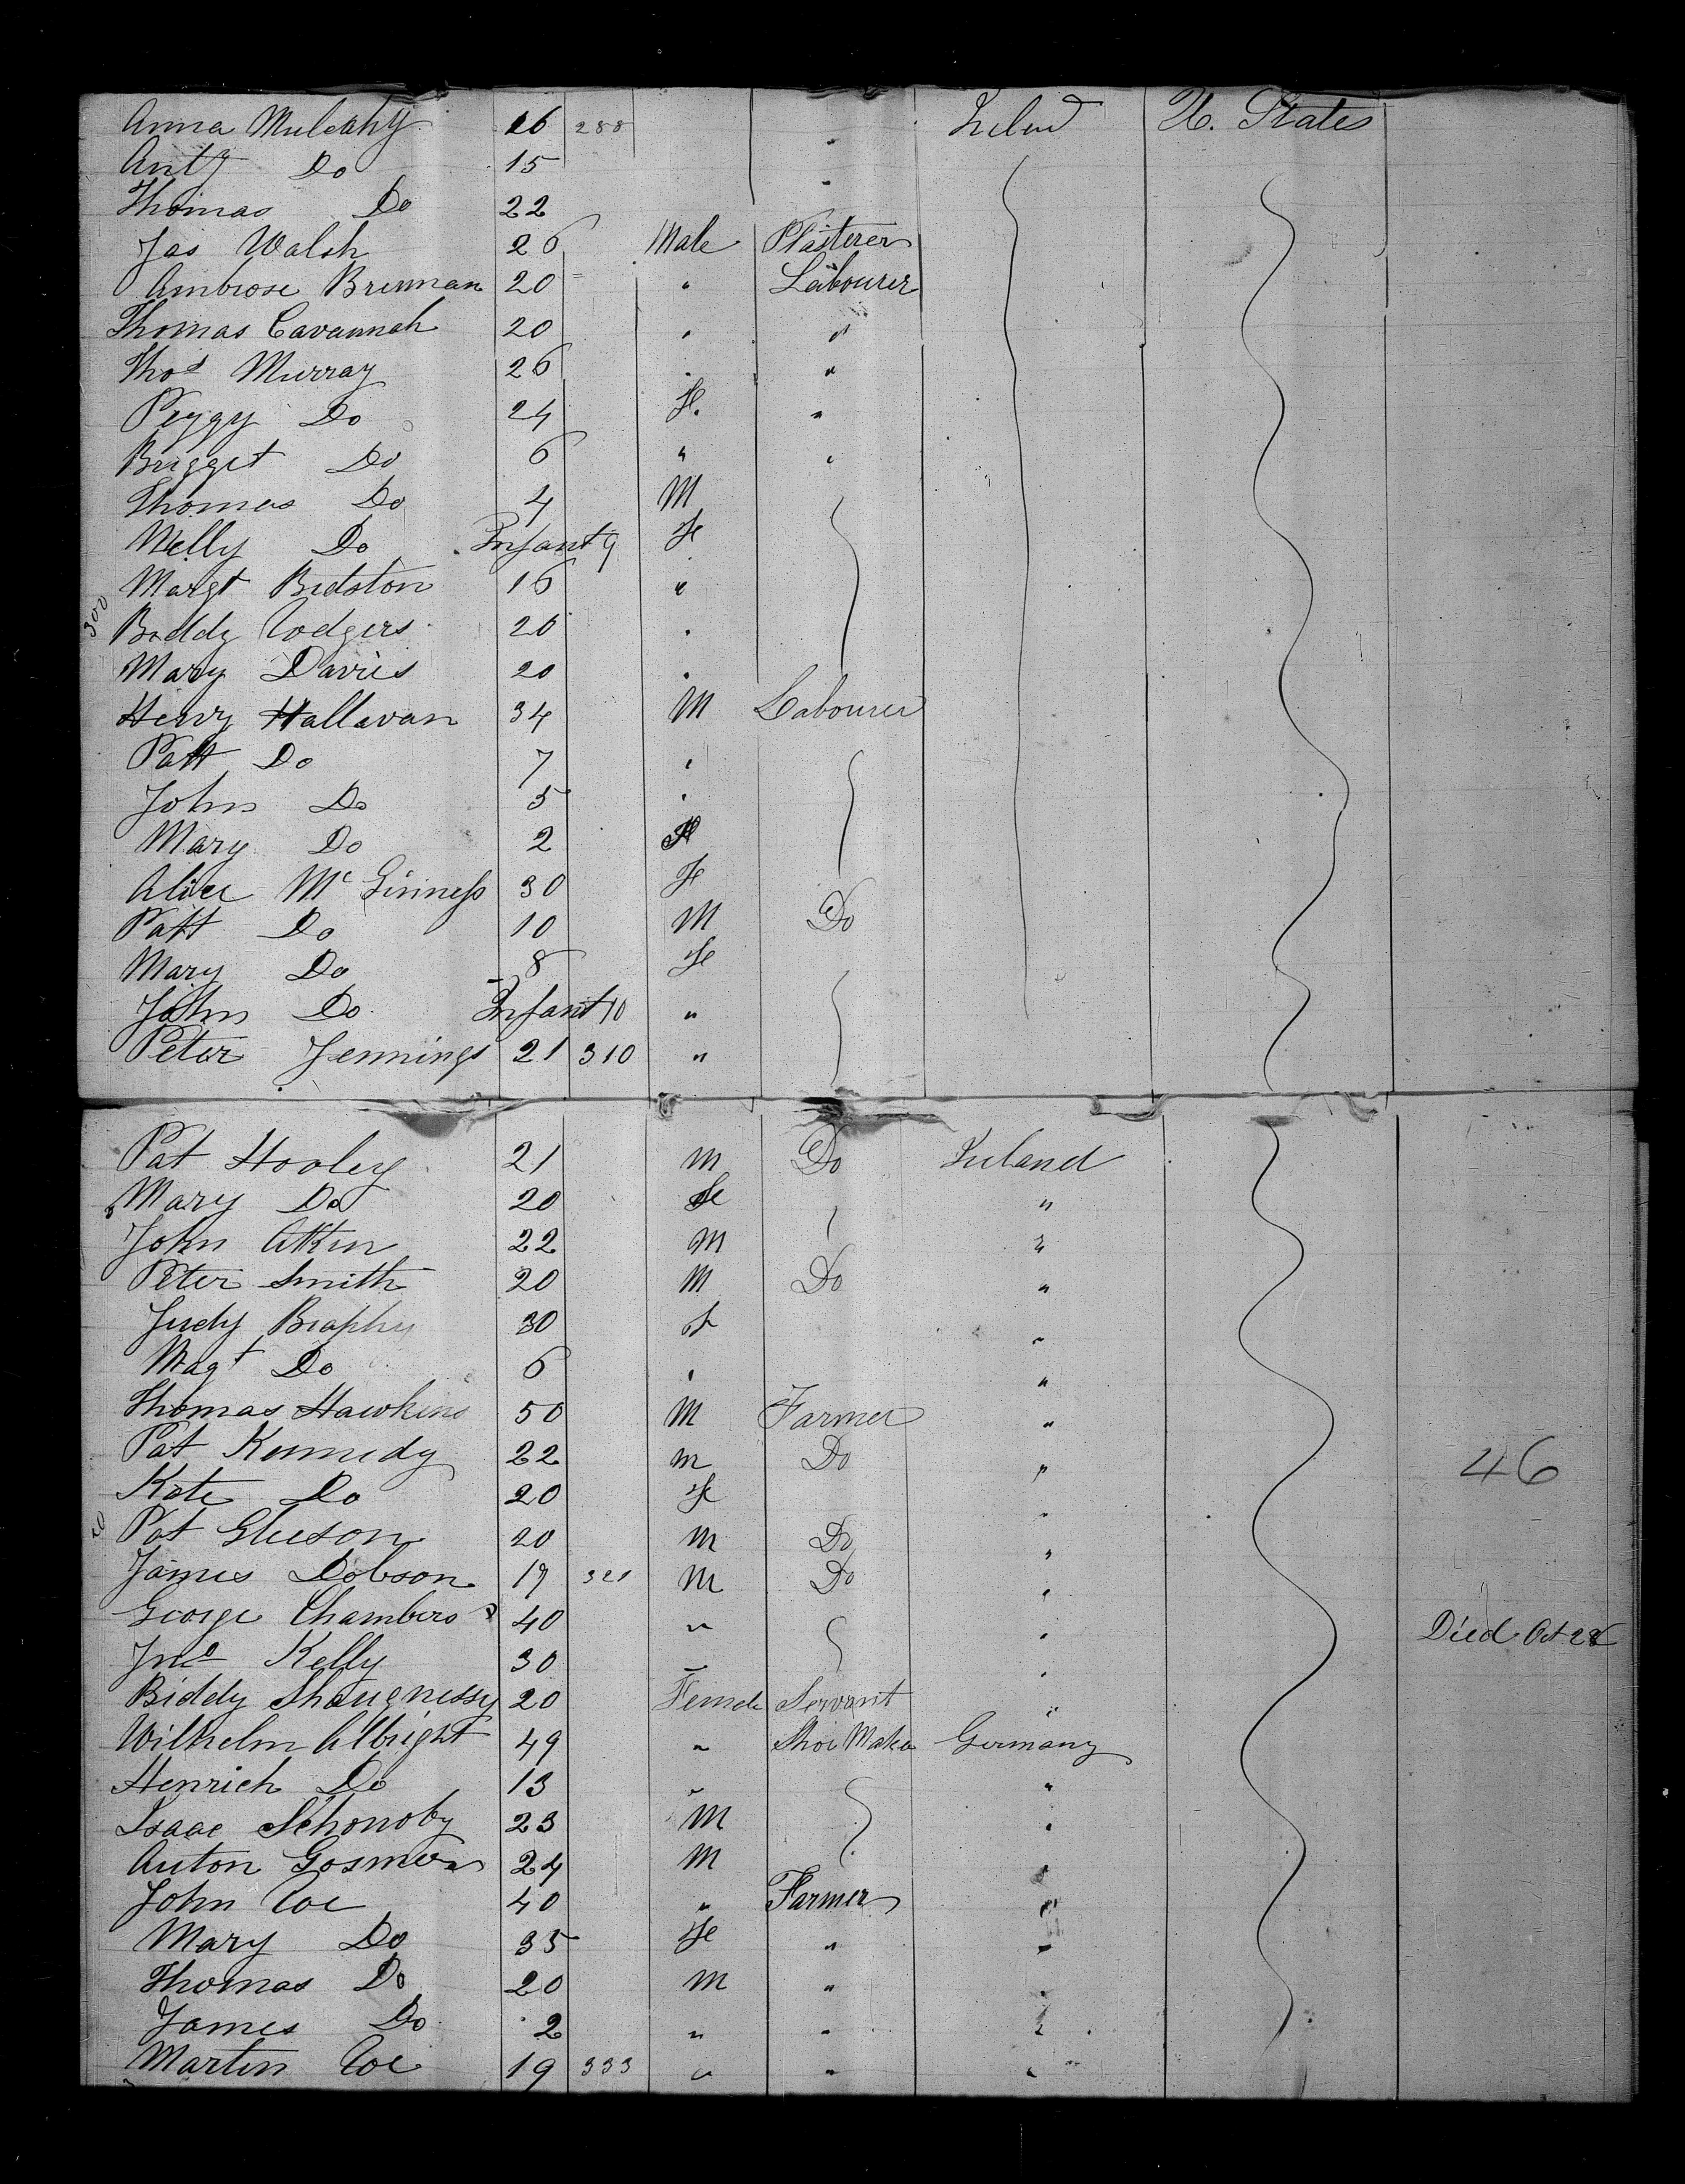 Anna Mulcahy 16 288 " Irelund U. States
Anty Do 15 "
Thomas Do 22
Jas Walsh 26 Male Plasterer
Ambrose Brennan 20 " Labourer
Thomas Cavannah 20 " "
Thos Murray 26 " "
Peggy Do 24 Fe "
Brigget Do 6 " "
Thomas Do 4 M
Melly Do Infant 9 Fe
Margt Bedston 16 "
300 Biddy Rodgers 20 "
Mary Davies 20 "
Henry Hallavan 34 M Labourer
Patt Do 7 "
John Do 5 "
Mary Do 2 Fe
Alice Mc Ginness 30 Fe
Patt Do 10 M Do
Mary Do 8 Fe
John Do Infant 10 "
Peter Jennings 21 310 "
Pat Hooley 21 M Do Ireland
Mary Do 20 Fe "
John Atkin 22 M "
Peter Smith 20 M Do "
Judy Brophy 30 F "
Magt Do 6 " "
Thomas Hawkins 50 M Farmer "
Pat Kennedy 22 M Do " 46
Kate Do 20 Fe "
Pat Gleeson 20 M Do "
James Dobson 19 321 M Do "
George Chambers 40 " " Died Oct 28
Jno Kelly 30 " "
Biddy Shaugnessy 20 Female Servant "
Wilhelm Albright 49 " Shoe Maker Germany
Henrich Do 13 " "
Isaac Schonoby 23 M "
Anton Gosman 24 M "
John Roe 40 " Farmer "
Mary Do 35 Fe " "
Thomas Do 20 M " "
James Do 2 " " "
Martin Roe 19 333 " " "